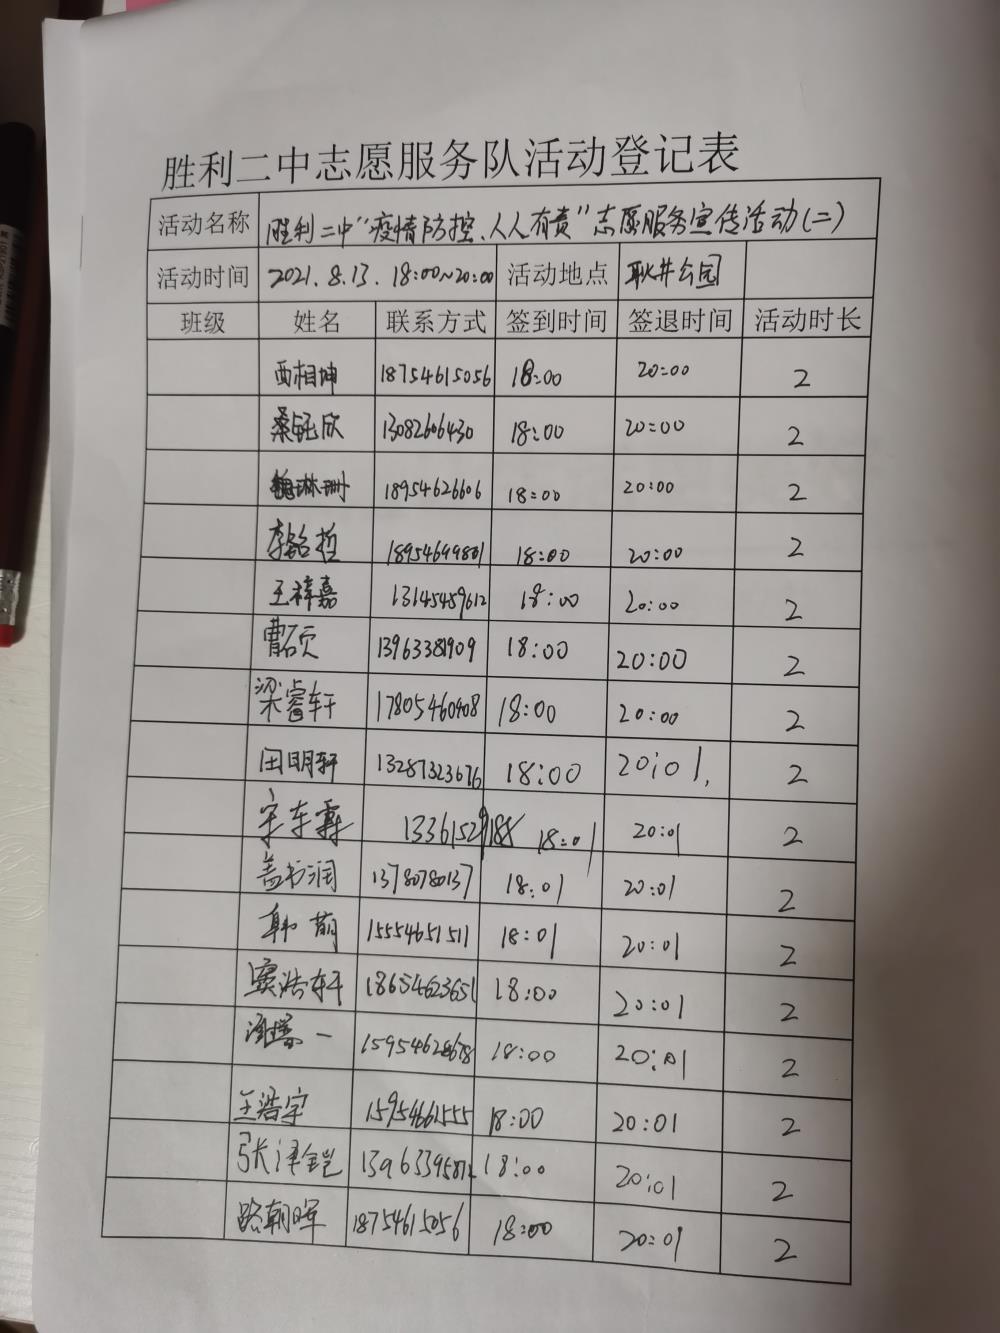 胜利二中志愿服务队活动登记表
活动名称 胜利二中“疫情防控、人人有责”志愿服务宣传活动(二)
活动时间 2021.8.13. 18:00~20:00 活动地点 耿井公园
班级 姓名 联系方式 签到时间 签退时间 活动时长
西相坤 18754615056 18:00 20:00 2
桑钰欣 13082606430 18:00 20:00 2
魏琳珊 18954626606 18:00 20:00 2
李铭哲 18954699801 18:00 20:00 2
王梓嘉 13145459612 18:00 20:00 2
曹硕 13963381909 18:00 20:00 2
梁睿轩 17805460408 18:00 20:00 2
田明轩 13287323676 18:00 20:01. 2
宋东霖 18:01 20:01 2
盖书润 13780780137 18:01 20:01 2
韩萌 15554651511 18:01 20:01 2
窦浩轩 18654623651 18:00 20:01 2
一 18:00 20:01 2
王浩宇 15954661555 18:00 20:01 2
张泽铠 18:00 20:01 2
路朝晖 18754615056 18:00 20:01 2